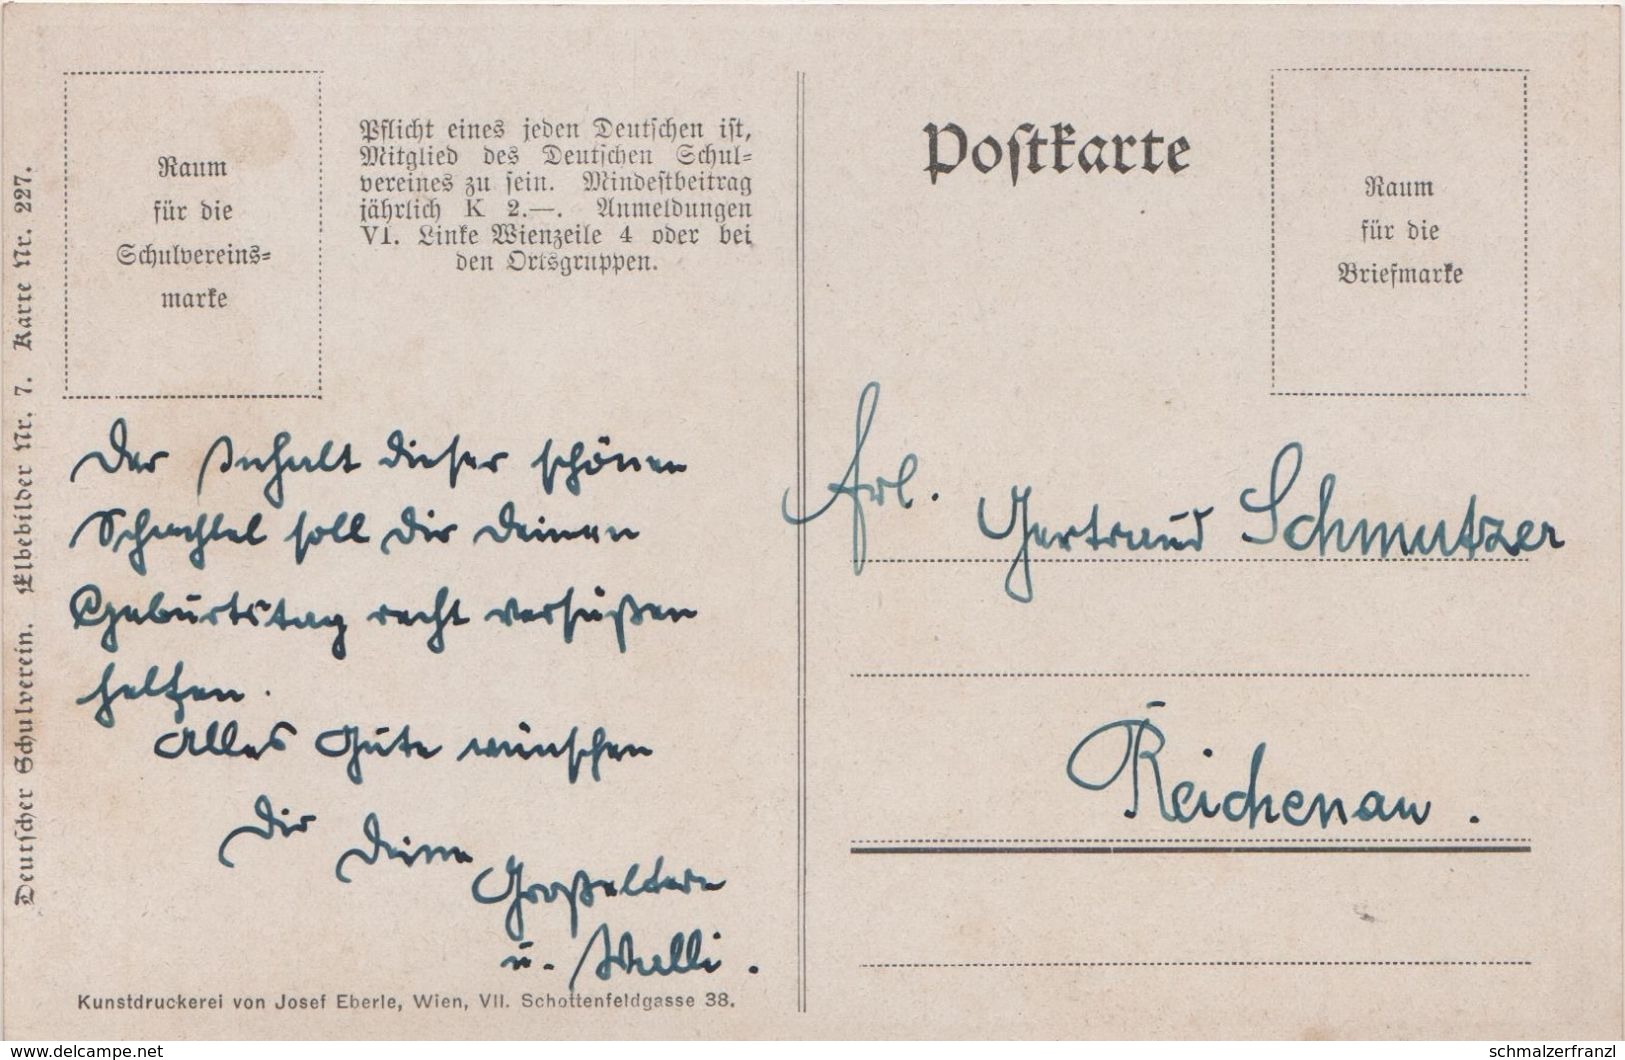 Deutscher Schulverein. Elbebilder Nr. 7. Karte Nr. 227.
Raum
für die
Schulvereins=
marke
Pflicht eines jeden Deutschen ist,
Mitglied des Deutschen Schul=
vereines zu sein. Mindestbeitrag
jährlich K 2.—. Anmeldungen
VI. Linke Wienzeile 4 oder bei
den Ortsgruppen.
Der Inhalt dieser schönen
Schachtel soll Dir Deinen
Geburtstag recht versüßen
helfen.
Alles Gute wünschen
Dir Deine
Großeltern
u. Walli.
Kunstdruckerei von Josef Eberle, Wien, VII. Schottenfeldgasse 38.
Postkarte
Raum
für die
Briefmarke
Frl. Gertraud Schmutzer
Reichenau.
www.delcampe.net
schmalzerfranzl